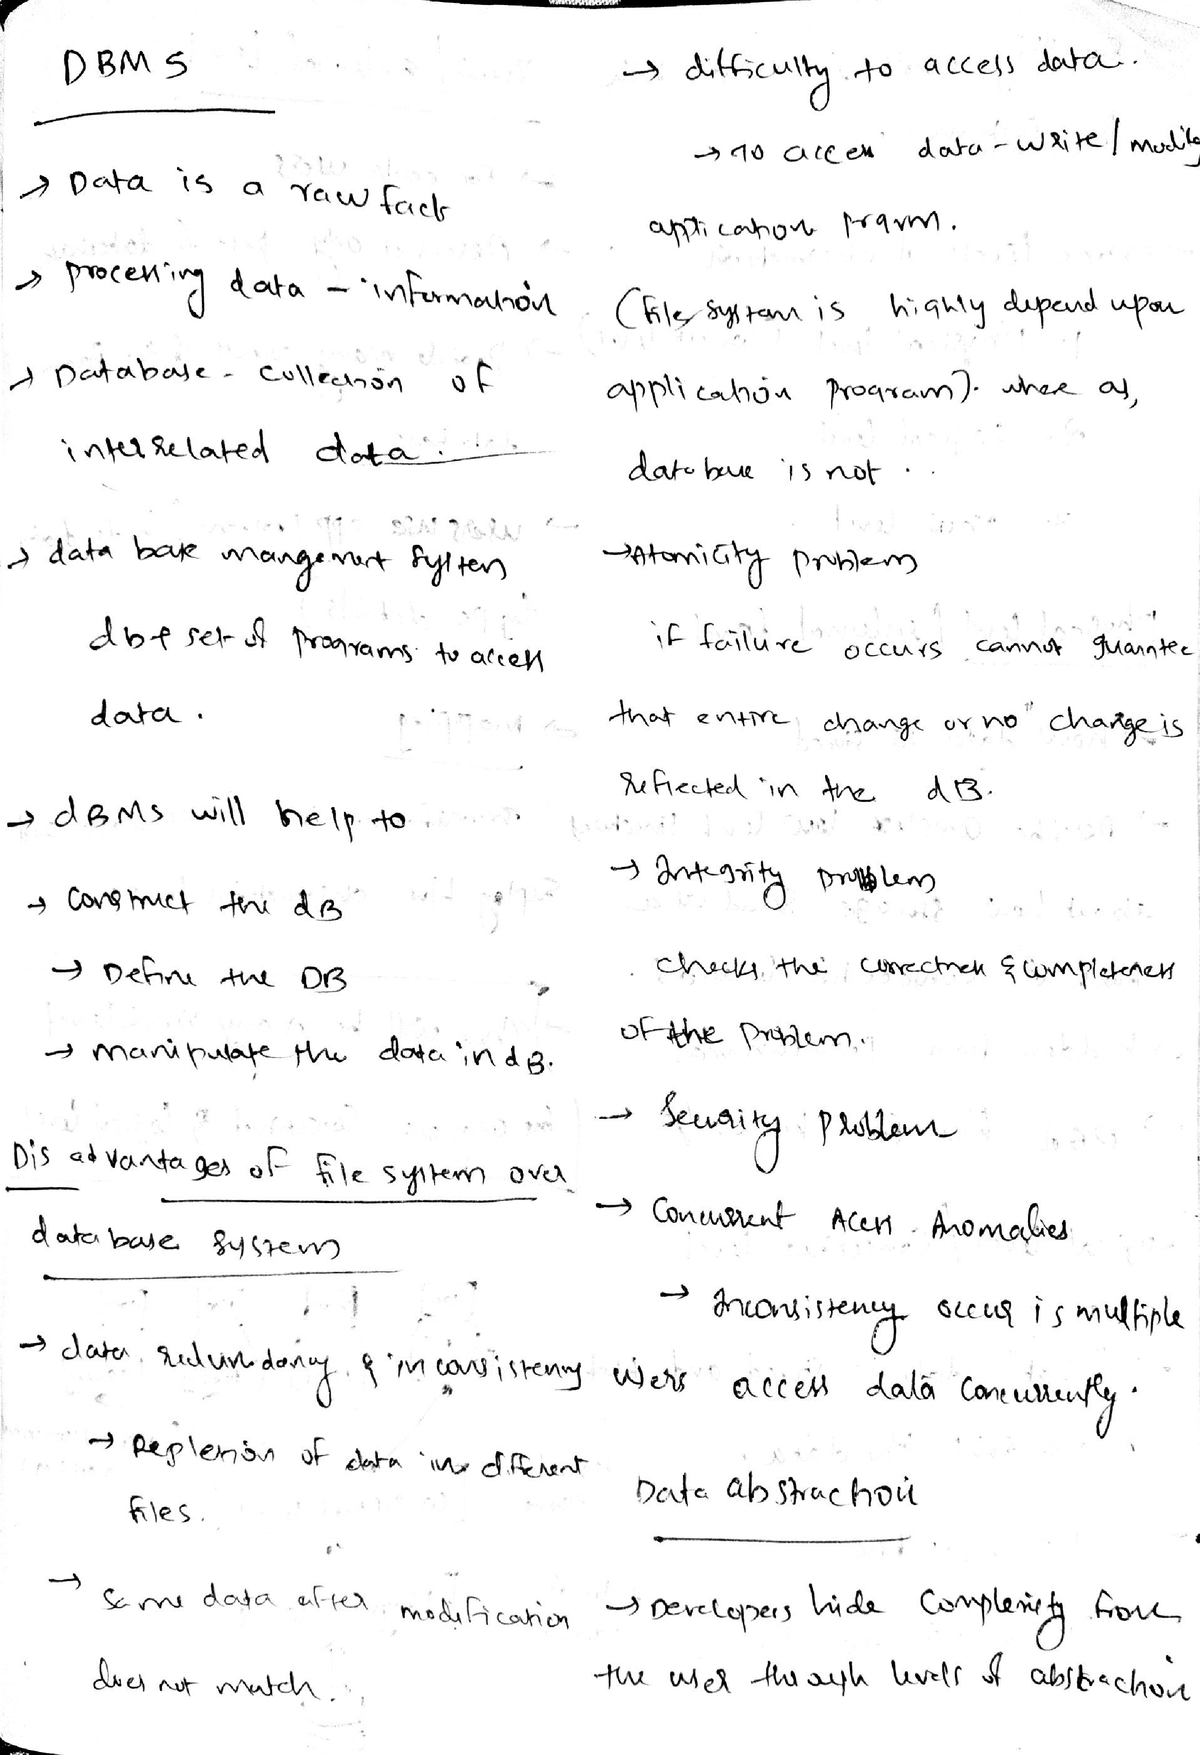 DBMS
→ Data is a raw fact
→ processing data - information
→ Database - collection of
interrelated data.
→ data base mangement system
db & set of programs to access
data.
→ dBMS will help to
→ Construct the dB
→ Define the DB
→ manipulate the data in dB.
Dis advantages of file system over
database system
→ data redundancy & inconsistency
→ Repletion of data in different
files.
→ Same data after modification
does not match.
→ difficulty to access data.
→ To access data - write/modify
application prgrm.
(file system is highly depend upon
application program). where as,
database is not.
→ Atomicity problem
if failure occurs cannot guarntee
that entire change or no" change is
reflected in the dB.
→ Integrity problem
checks the correctness & completeness
of the problem.
→ Security problem
→ Concurrent Acess Anomalies
→ Inconsistency occur is multiple
users access data concurrently.
Data abstraction
→ Developers hide complexity from
the user through levels of abstraction